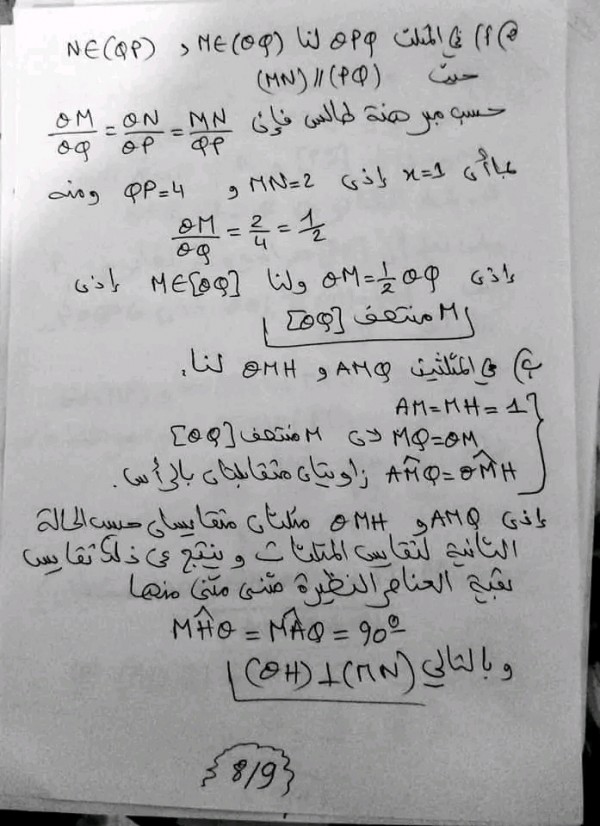 أ) في المثلث OPQ لنا M∈(OQ) و N∈(QP)
حيث (MN)//(PQ)
حسب مبرهنة طالس فإن OM/OQ = ON/OP = MN/QP
بما أن x=1 إذن MN=2 و QP=4 ومنه
OM/OQ = 2/4 = 1/2
إذن OM=1/2 OQ ولنا M∈[OQ] إذن
M منتصف [OQ]
ب) في المثلثين AMQ و OMH لنا:
AM=MH=1
MQ=OM لأن M منتصف [OQ]
AM̂Q=OM̂H زاويتان متقابلتان بالرأس.
إذن AMQ و OMH مثلثان متقايسان حسب الحالة
الثانية لتقايس المثلثات و ينتج عن ذلك تقايس
بقية العناصر النظيرة مثنى مثنى منها
MĤO = MÂQ = 90°
و بالتالي (OH)⊥(MN)
8/9